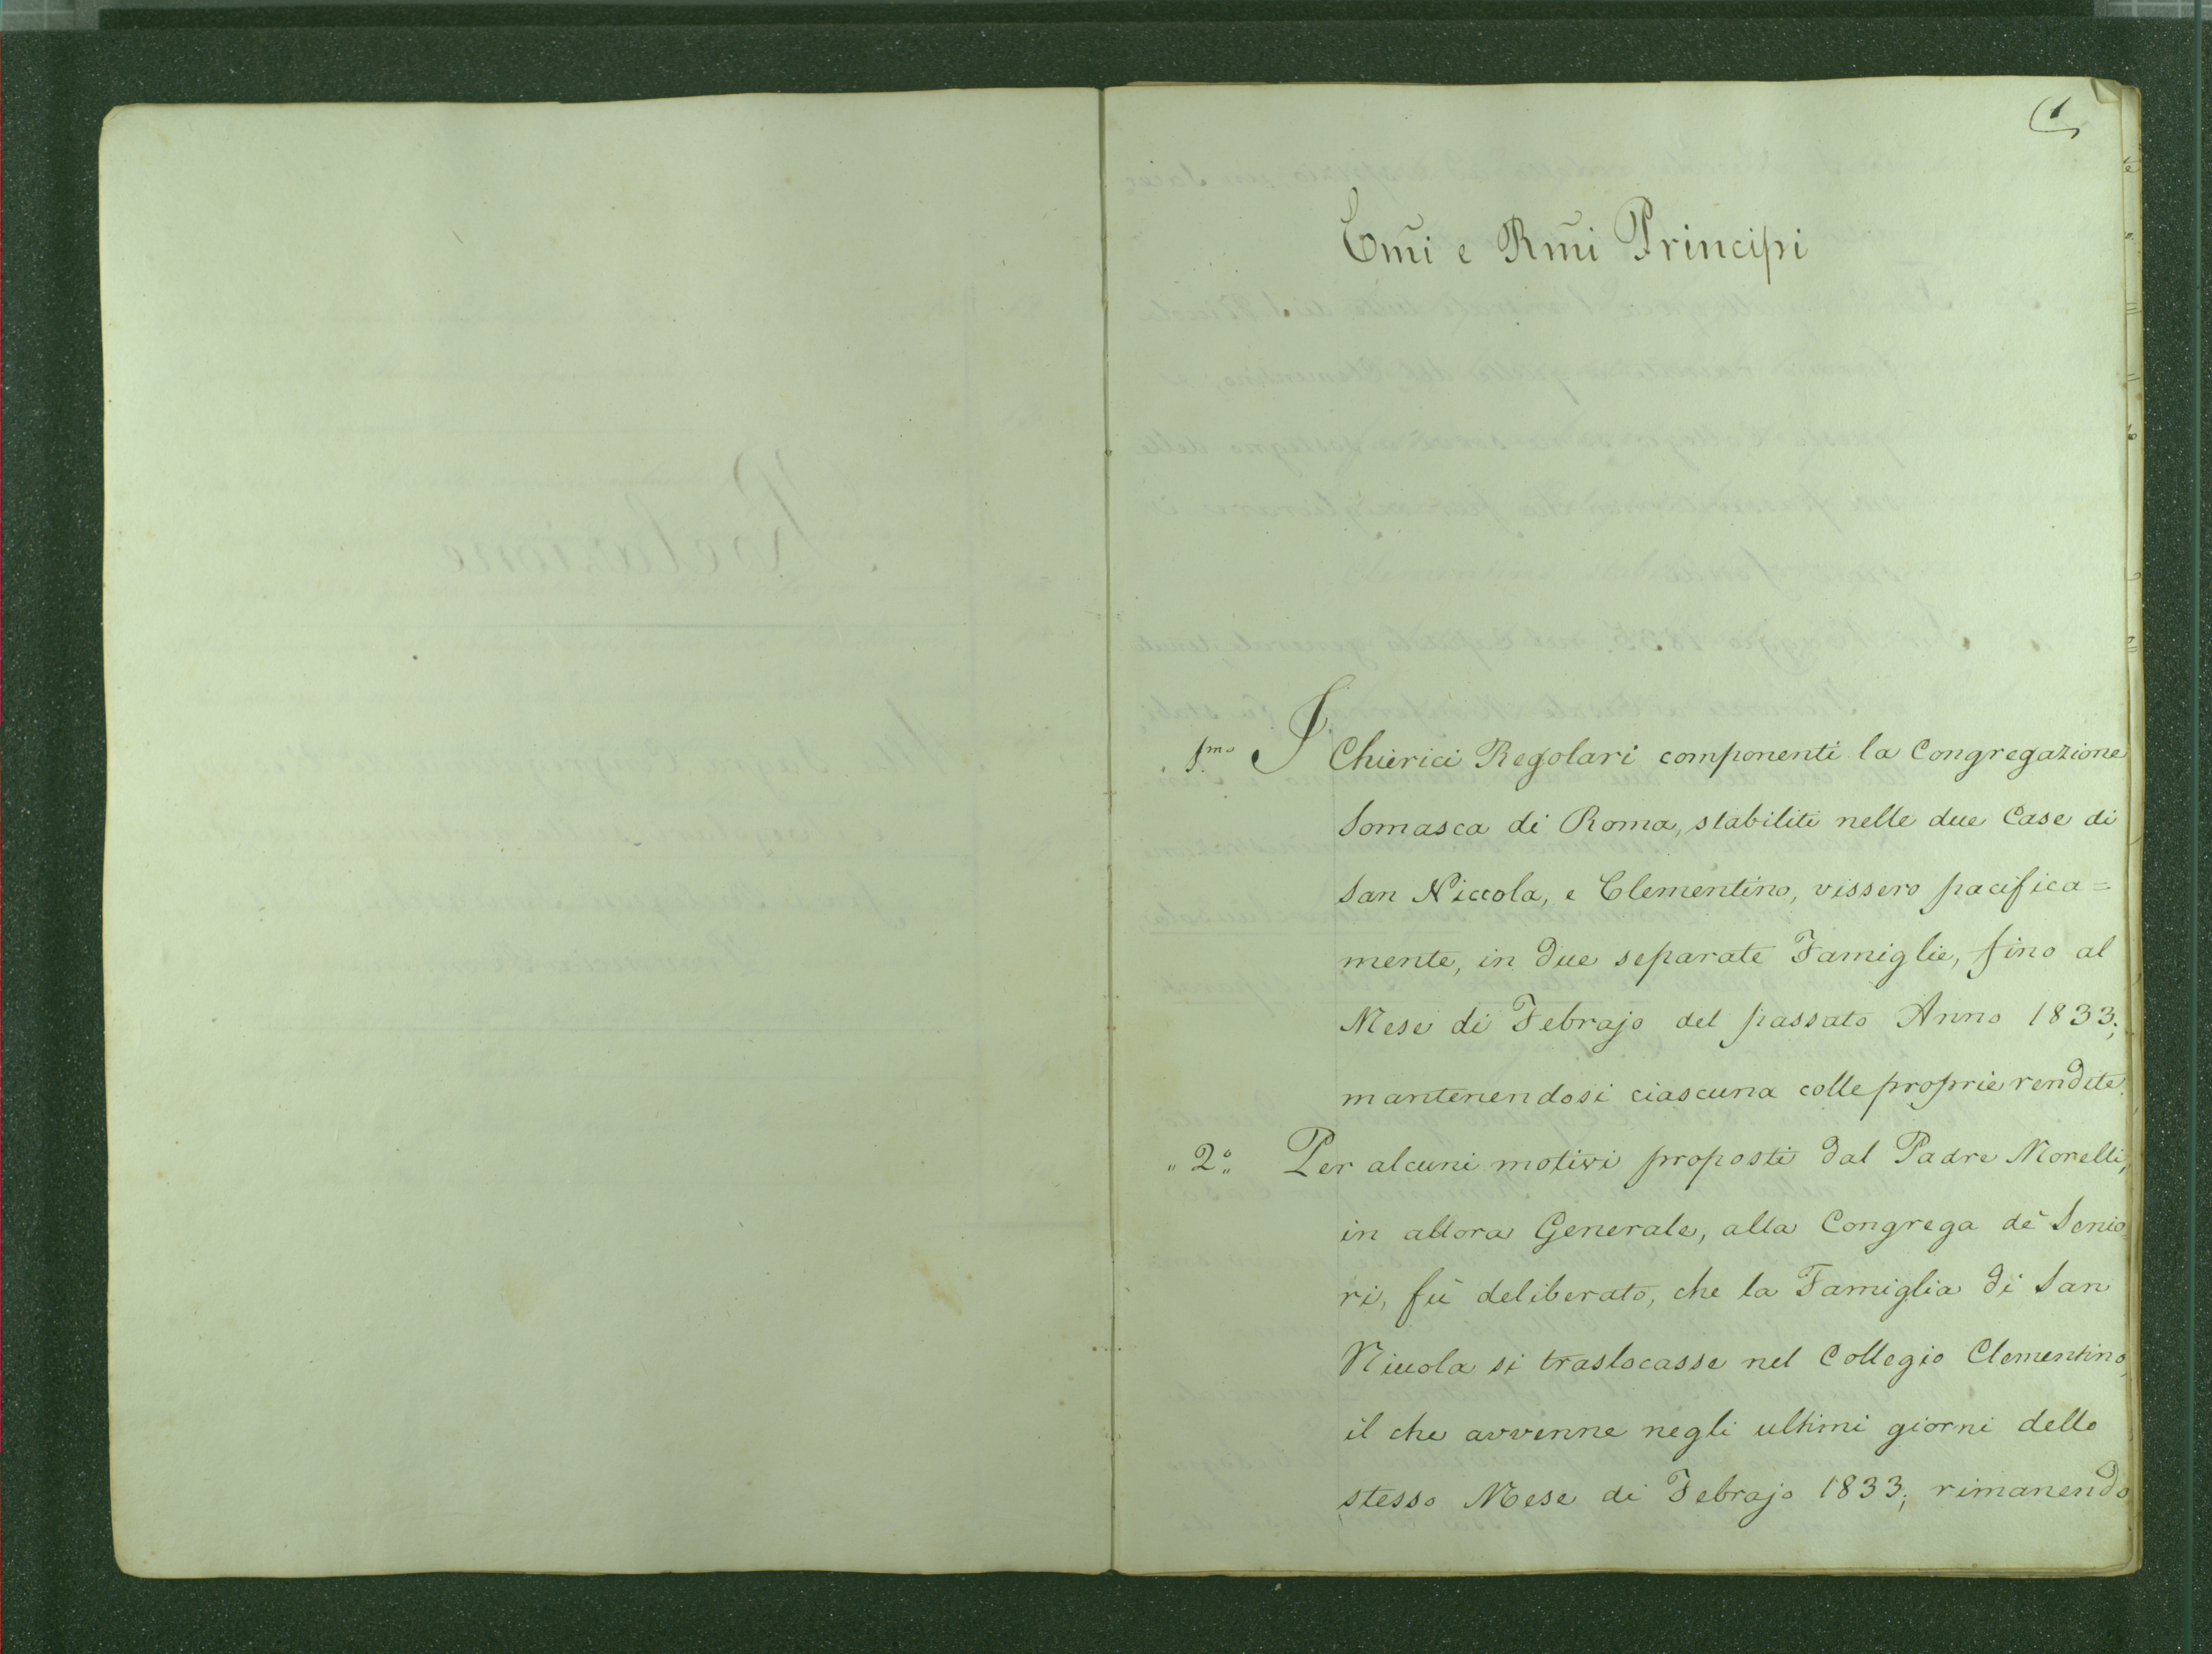 1
Em̃i e Rm̃i Principi
1.mo I Chierici Regolari componenti la Congregazione
Somasca di Roma, stabiliti nelle due Case di
San Niccola, e Clementino, vissero pacifica=
mente, in due separate Famiglie, fino al
Mese di Febrajo del passato Anno 1833;
mantenendosi ciascuna colle proprie rendite.
„ 2.° Per alcuni motivi proposti dal Padre Morelli,
in allora Generale, alla Congrega de' Senio=
ri, fù deliberato, che la Famiglia di San
Niccola si traslocasse nel Collegio Clementino,
il che avvenne negli ultimi giorni dello
stesso Mese di Febrajo 1833; rimanendo